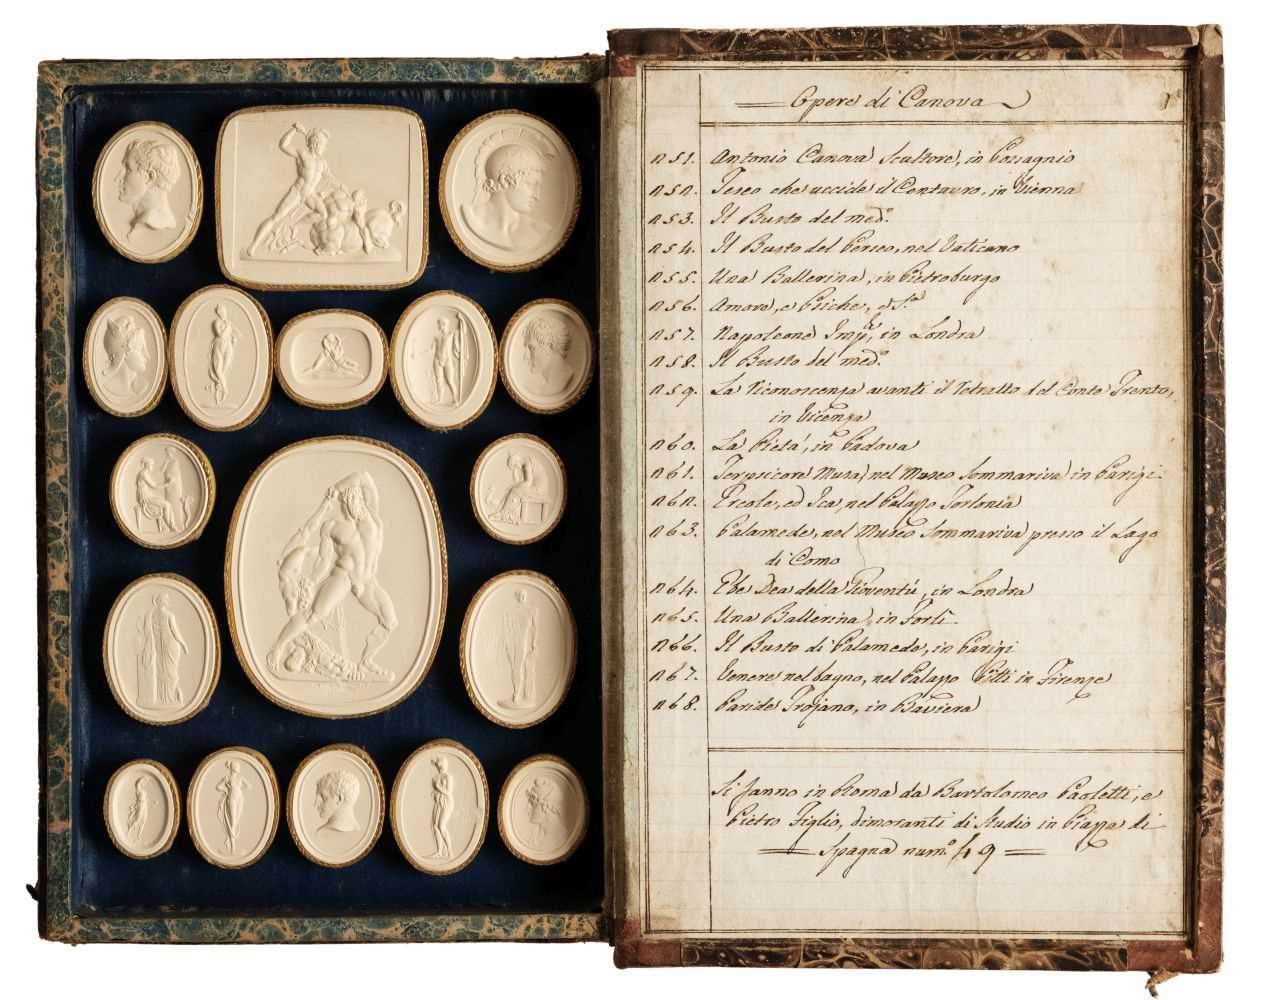 Opere di Canova
n 51. Antonio Canova Scultore, in Possagnio
n 52. Teseo che uccide il Centauro, in Vienna
n 53. Il Busto del med.º
n 54. Il Busto del Perseo, nel Vaticano
n 55. Una Ballerina, in Pietroburgo
n 56. Amore, e Psiche,
n 57. Napoleone Imp.r in Londra
n 58. Il Busto del med.º
n 59. La Riconoscenza avanti il Retratto del Conte Trento,
in Vicenza
n 60. La Pietá, in Padova
n 61. Terpsicore Musa, nel Museo Sommariva in Parigi
n 62. Ercole, ed Ica, nel Palazzo Torlonia
n 63. Palamede, nel Museo Sommariva presso il Lago
di Como
n 64. Ebe Dea della Gioventú, in Londra
n 65. Una Ballerina, in Forlì
n 66. Il Busto di Palamede, in Parigi
n 67. Venere nel bagno, nel Palazzo Pitti in Firenze
n 68. Paride Trojano, in Baviera
Si fanno in Roma da Bartolomeo Paoletti, e
Pietro Figlio, dimoranti di Studio in Piazza di
Spagna num.º 49